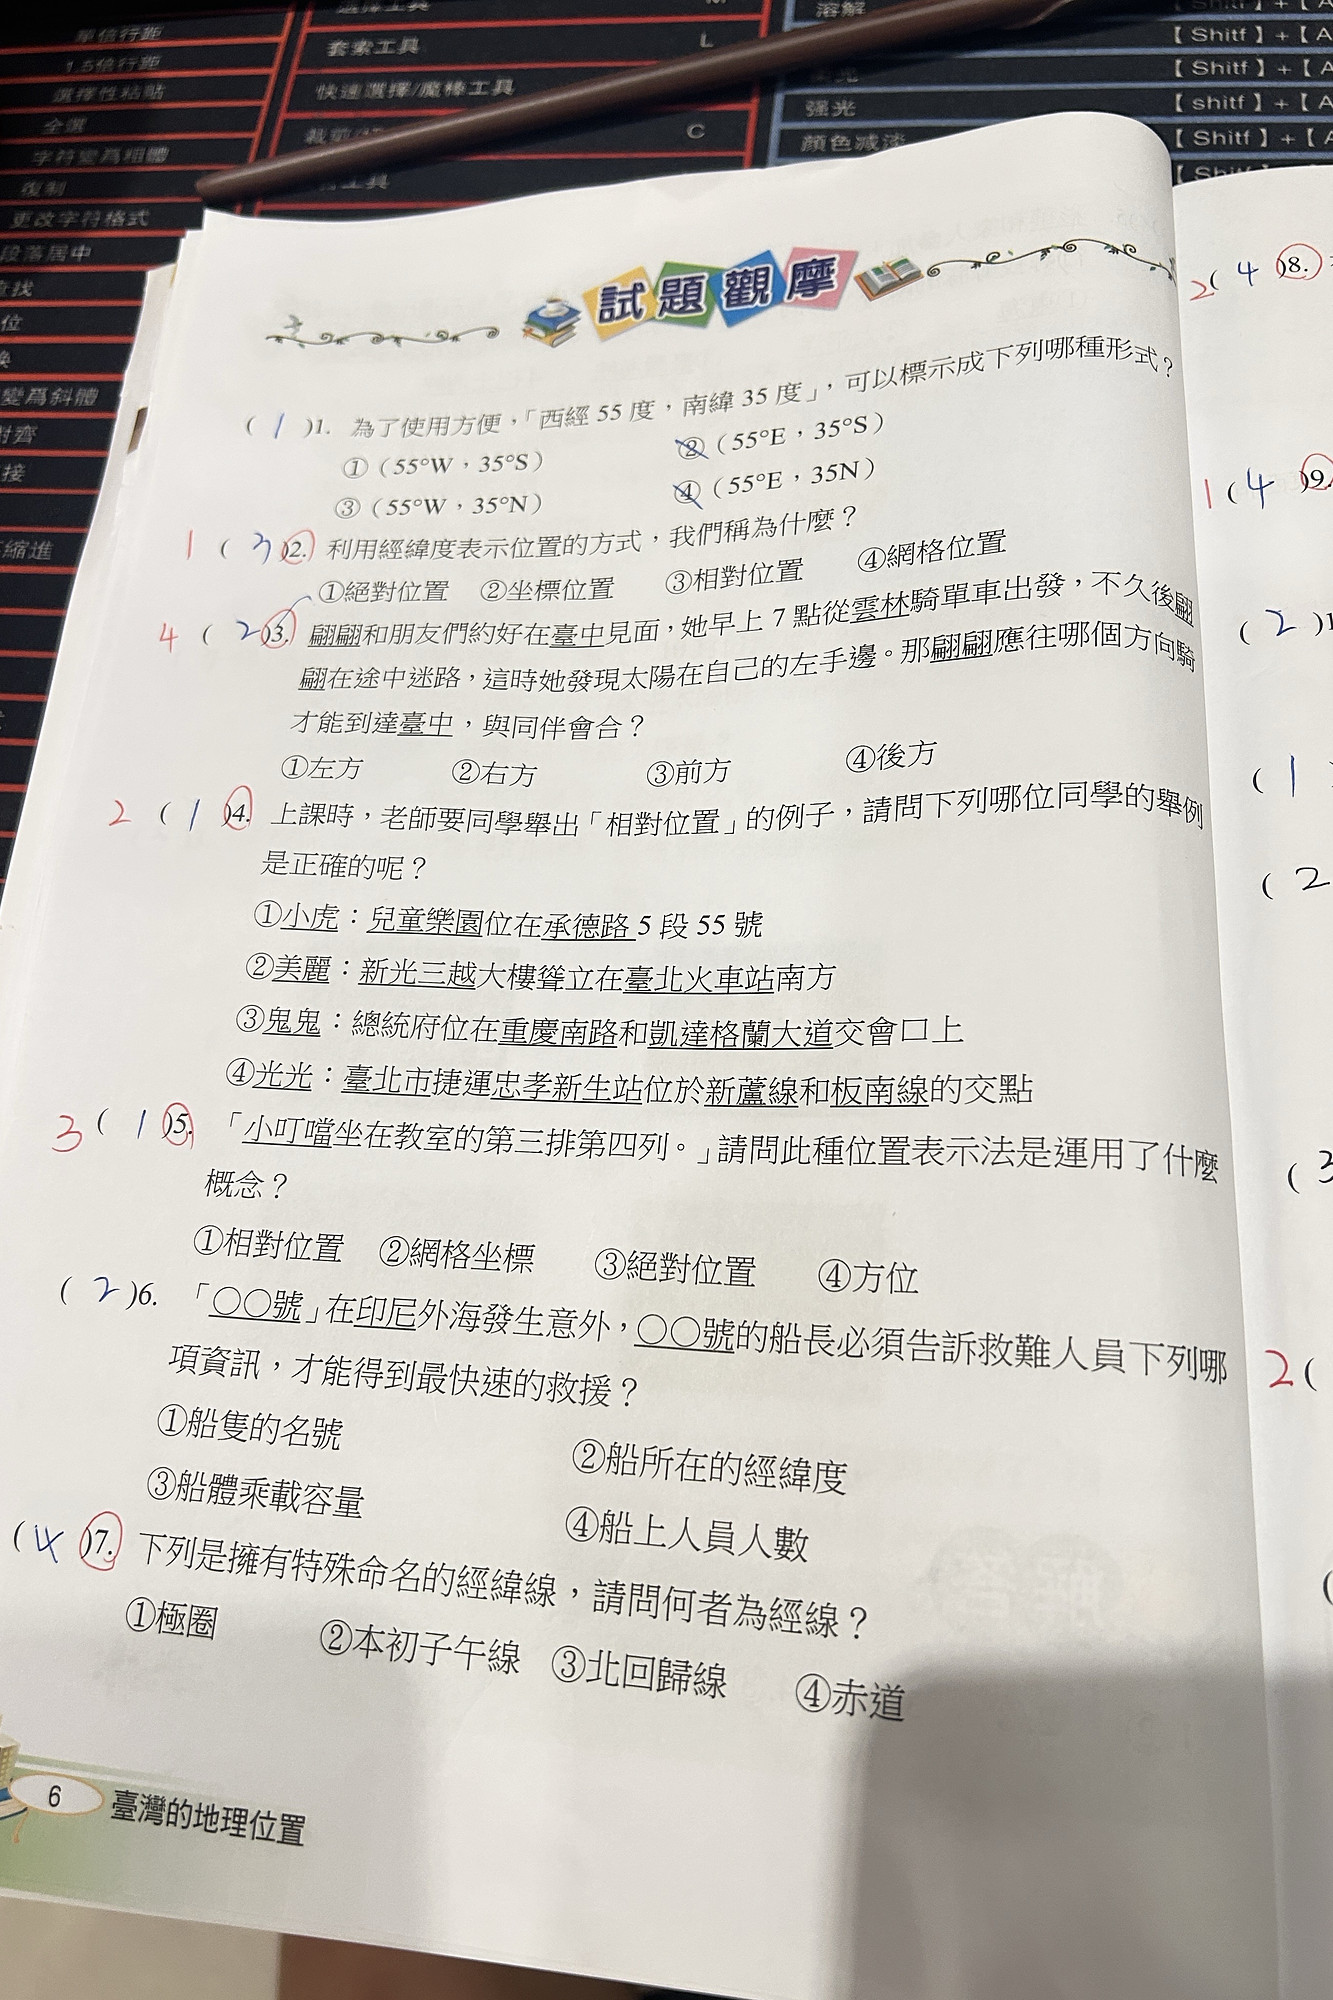 單倍行距
1.5倍行距
選擇性粘貼
全選
字符變爲粗體
復制
更改字符格式
段落居中
查找
位
變爲斜體
對齊
接
縮進
套索工具 L
快速選擇/魔棒工具
C
工具
溶解
【Shitf】+【A
【Shitf】+【A
强光 【shitf】+【A
顔色减淡 【Shitf】+【A
試題觀摩
( 1 )1. 為了使用方便，「西經 55 度，南緯 35 度」，可以標示成下列哪種形式？
①（55°W，35°S） ②（55°E，35°S）
③（55°W，35°N） ④（55°E，35N）
1 ( 3 )2. 利用經緯度表示位置的方式，我們稱為什麼？
①絕對位置 ②坐標位置 ③相對位置 ④網格位置
4 ( 2 )3. 翩翩和朋友們約好在臺中見面，她早上 7 點從雲林騎單車出發，不久後翩
翩在途中迷路，這時她發現太陽在自己的左手邊。那翩翩應往哪個方向騎
才能到達臺中，與同伴會合？
①左方 ②右方 ③前方 ④後方
2 ( 1 )4. 上課時，老師要同學舉出「相對位置」的例子，請問下列哪位同學的舉例
是正確的呢？
①小虎：兒童樂園位在承德路 5 段 55 號
②美麗：新光三越大樓聳立在臺北火車站南方
③鬼鬼：總統府位在重慶南路和凱達格蘭大道交會口上
④光光：臺北市捷運忠孝新生站位於新蘆線和板南線的交點
3 ( 1 )5. 「小叮噹坐在教室的第三排第四列。」請問此種位置表示法是運用了什麼
概念？
①相對位置 ②網格坐標 ③絕對位置 ④方位
( 2 )6. 「○○號」在印尼外海發生意外，○○號的船長必須告訴救難人員下列哪
項資訊，才能得到最快速的救援？
①船隻的名號 ②船所在的經緯度
③船體乘載容量 ④船上人員人數
( 4 )7. 下列是擁有特殊命名的經緯線，請問何者為經線？
①極圈 ②本初子午線 ③北回歸線 ④赤道
6 臺灣的地理位置
2 ( 4 )8.
1 ( 4 )9.
( 2 )1
( 1
( 2
( 3
2 (